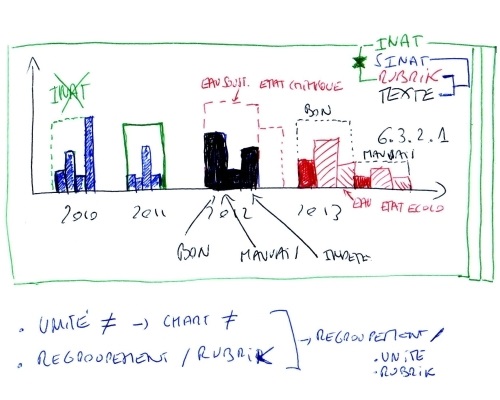 INAT
SINAT
RUBRIK
TEXTE
INAT
EAU SOUT. ETAT CHIMIQUE
BON
6.3.2.1
MAUVAIS
2010 2011 2012 2013
EAU ETAT ECOLO
BON MAUVAIS INDETE
. UNITÉ ≠ → CHART ≠
. REGROUPEMENT / RUBRIK
→ REGROUPEMENT /
. UNITE
. RUBRIK